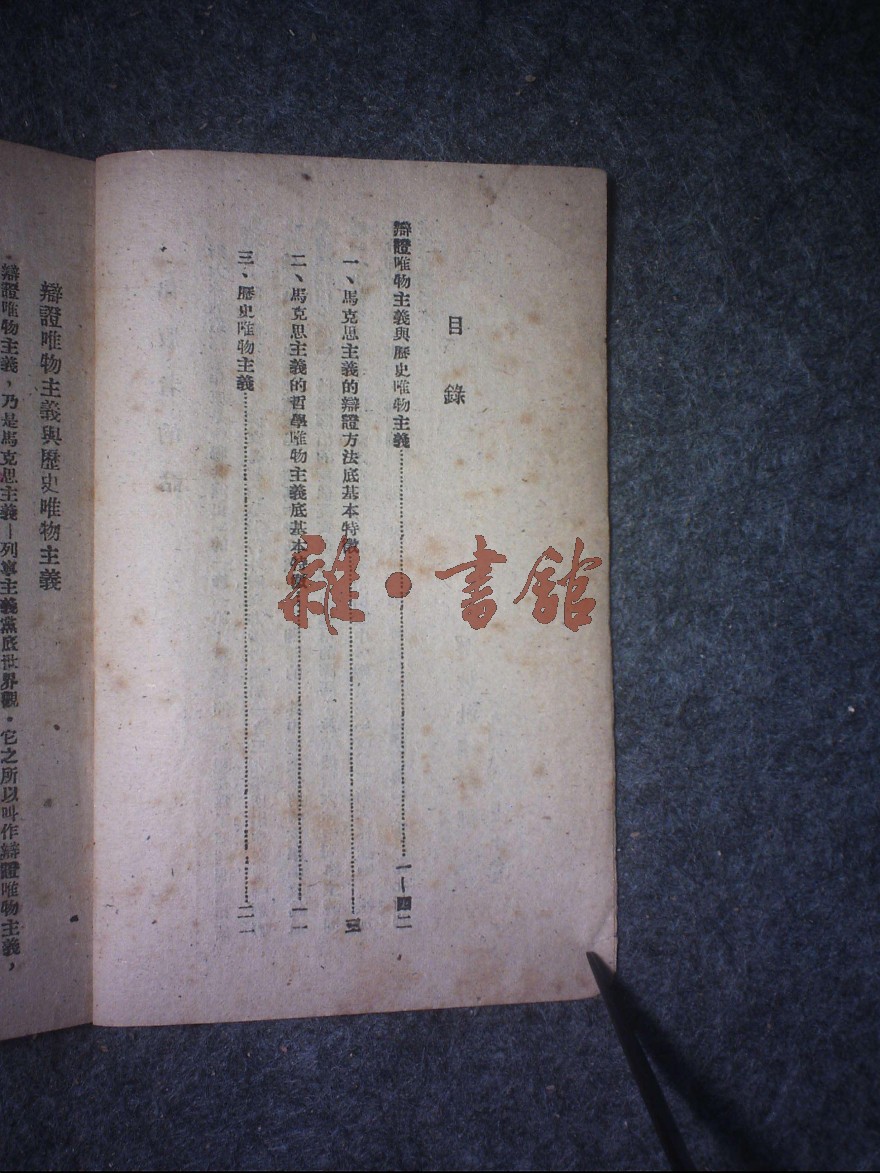 目錄
辯證唯物主義與歷史唯物主義……一—四二
一、馬克思主義的辯證方法底基本特徵……三
二、馬克思主義的哲學唯物主義底基本特徵……一一
三、歷史唯物主義……二一
辯證唯物主義與歷史唯物主義
辯證唯物主義，乃是馬克思主義—列寧主義黨底世界觀。它之所以叫作辯證唯物主義，
雜·書館